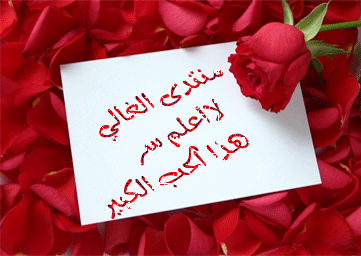 منتدى الغالي
لااعلم سر
هذا الحب الكبير